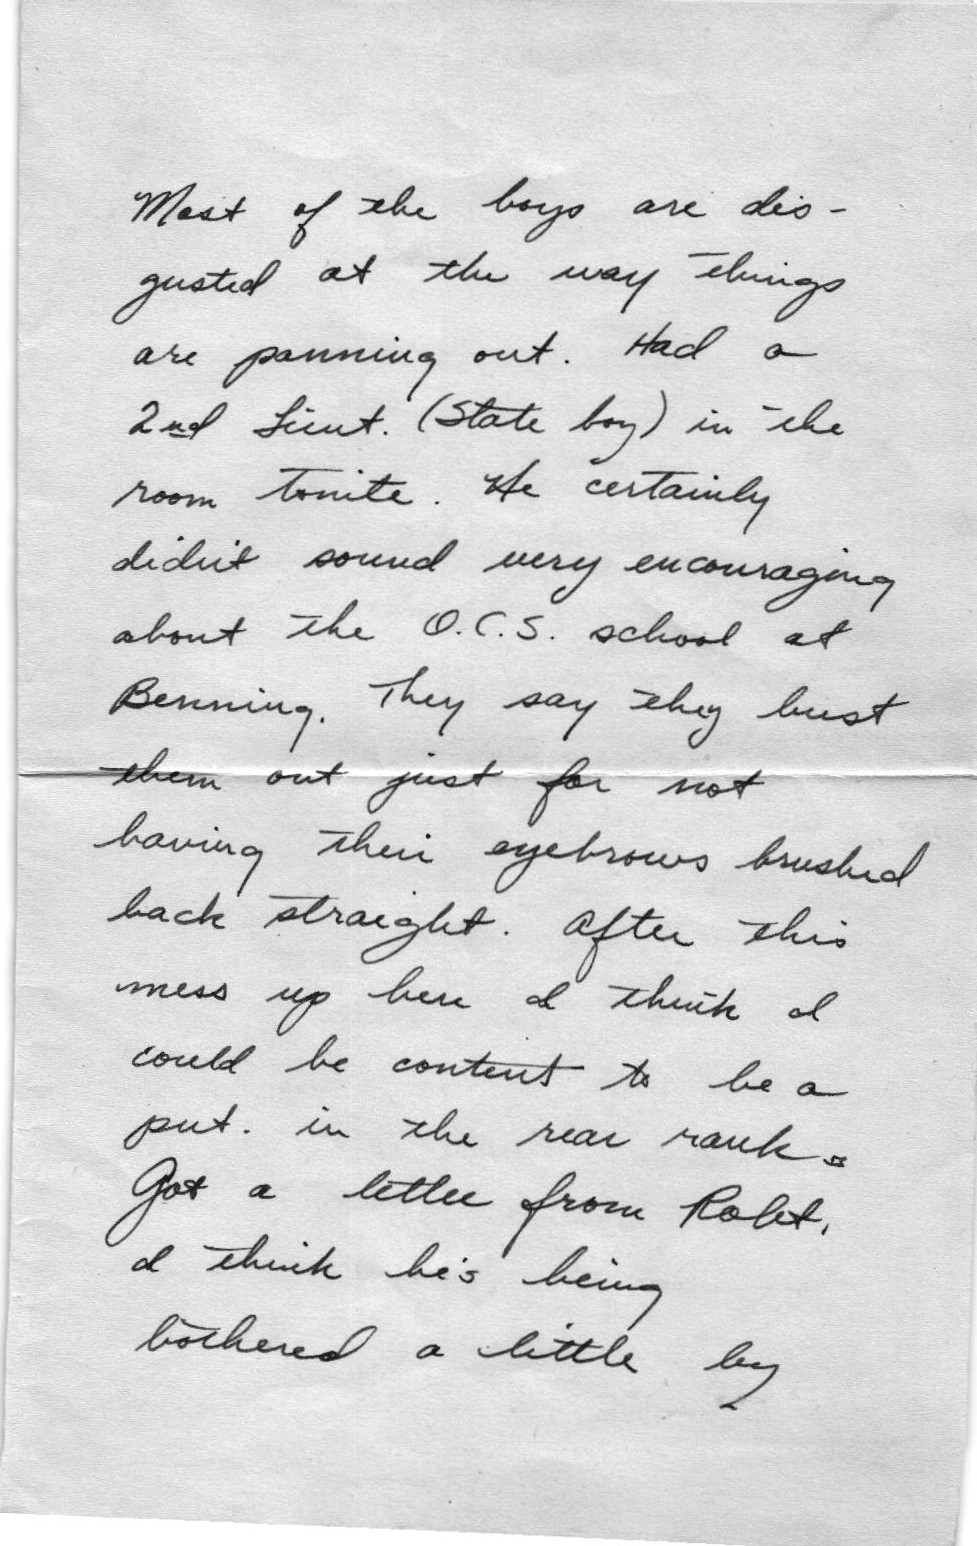 Most of the boys are dis-
gusted at the way things
are panning out. Had a
2nd Lieut. (State boy) in the
room tonite. He certainly
didn't sound very encouraging
about the O.C.S. school at
Benning. They say they bust
them out just for not
having their eyebrows brushed
back straight. After this
mess up here I think I
could be content to be a
pvt. in the rear rank.
Got a letter from Robt.
I think he's being
bothered a little by